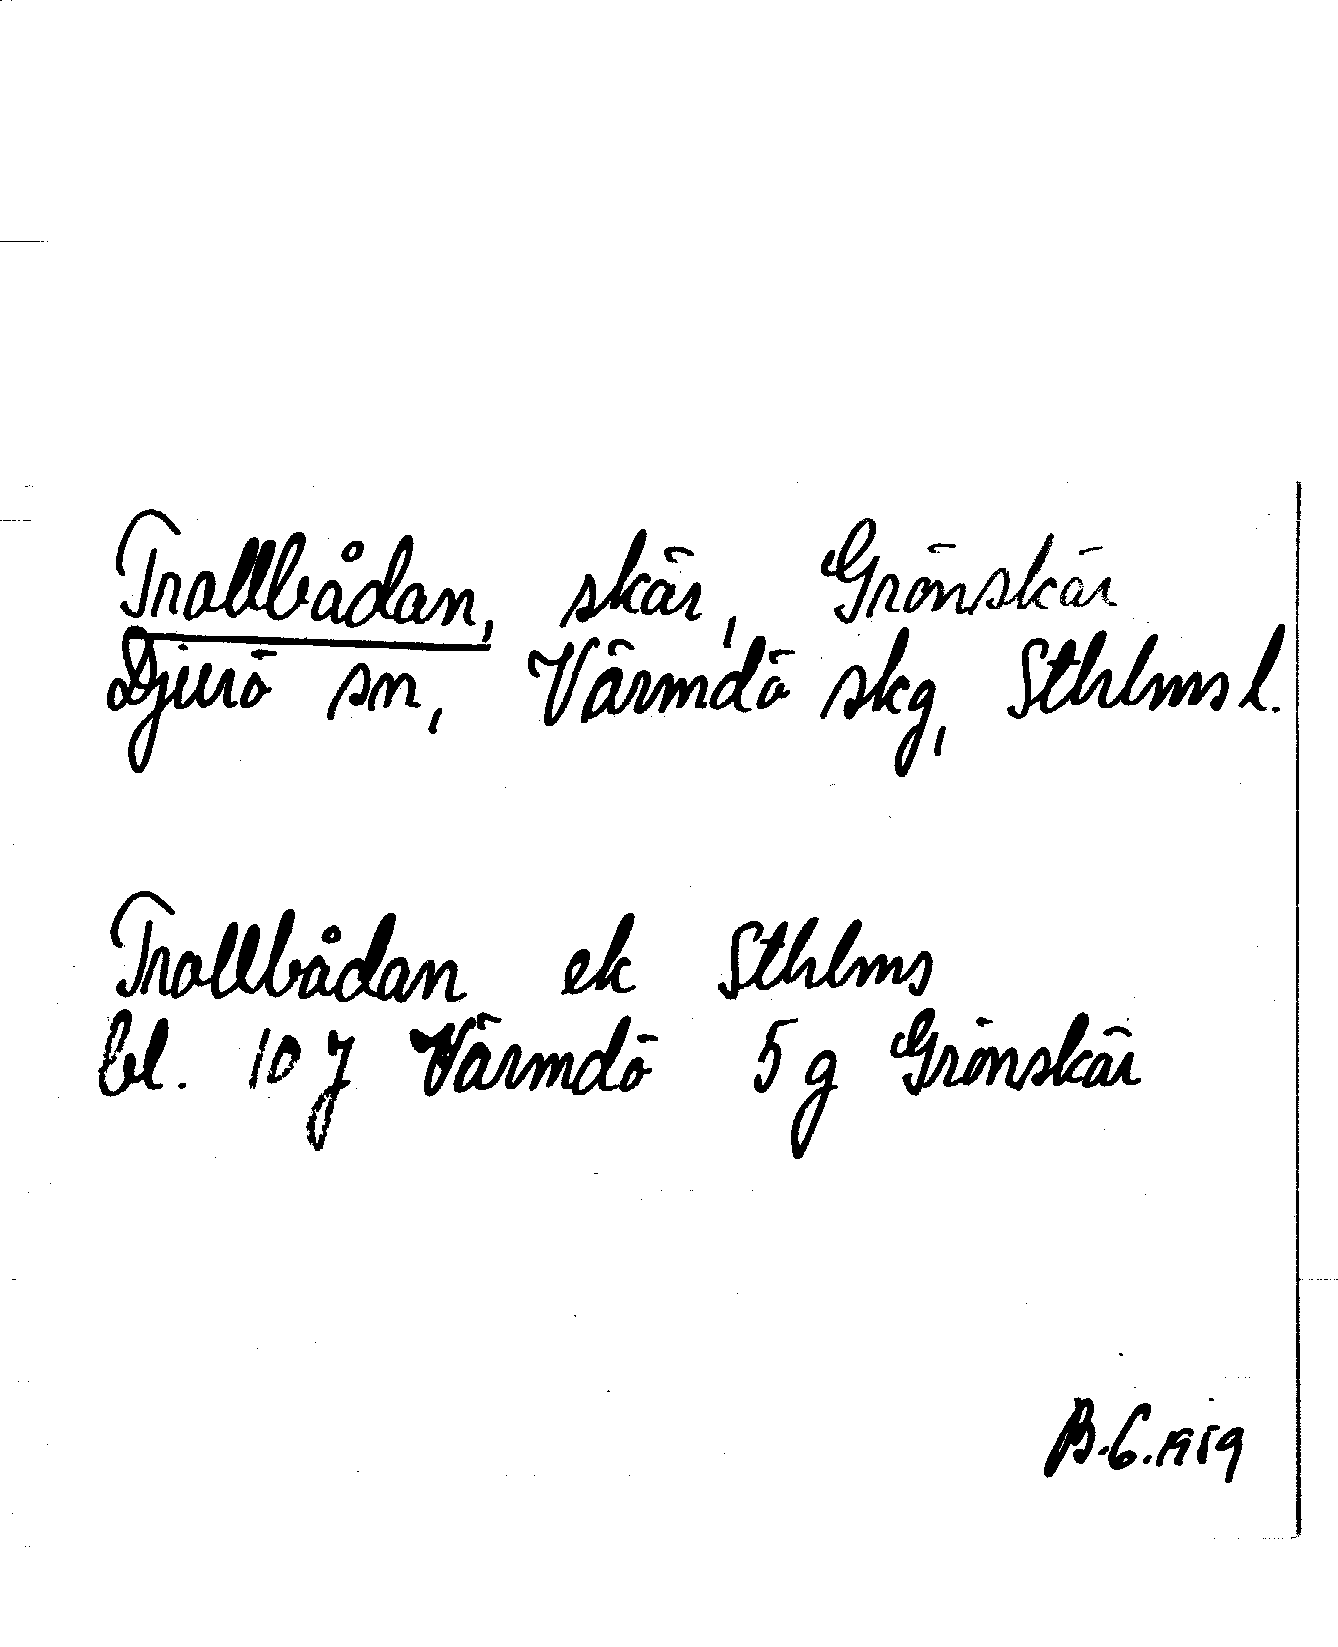 Trollbådan, skär, Grönskär
Djurö sn, Värmdö skg, Sthlms l.
Trollbådan ek Sthlms
bl. 10 J Värmdö 5 g Grönskär
B.G. 1959